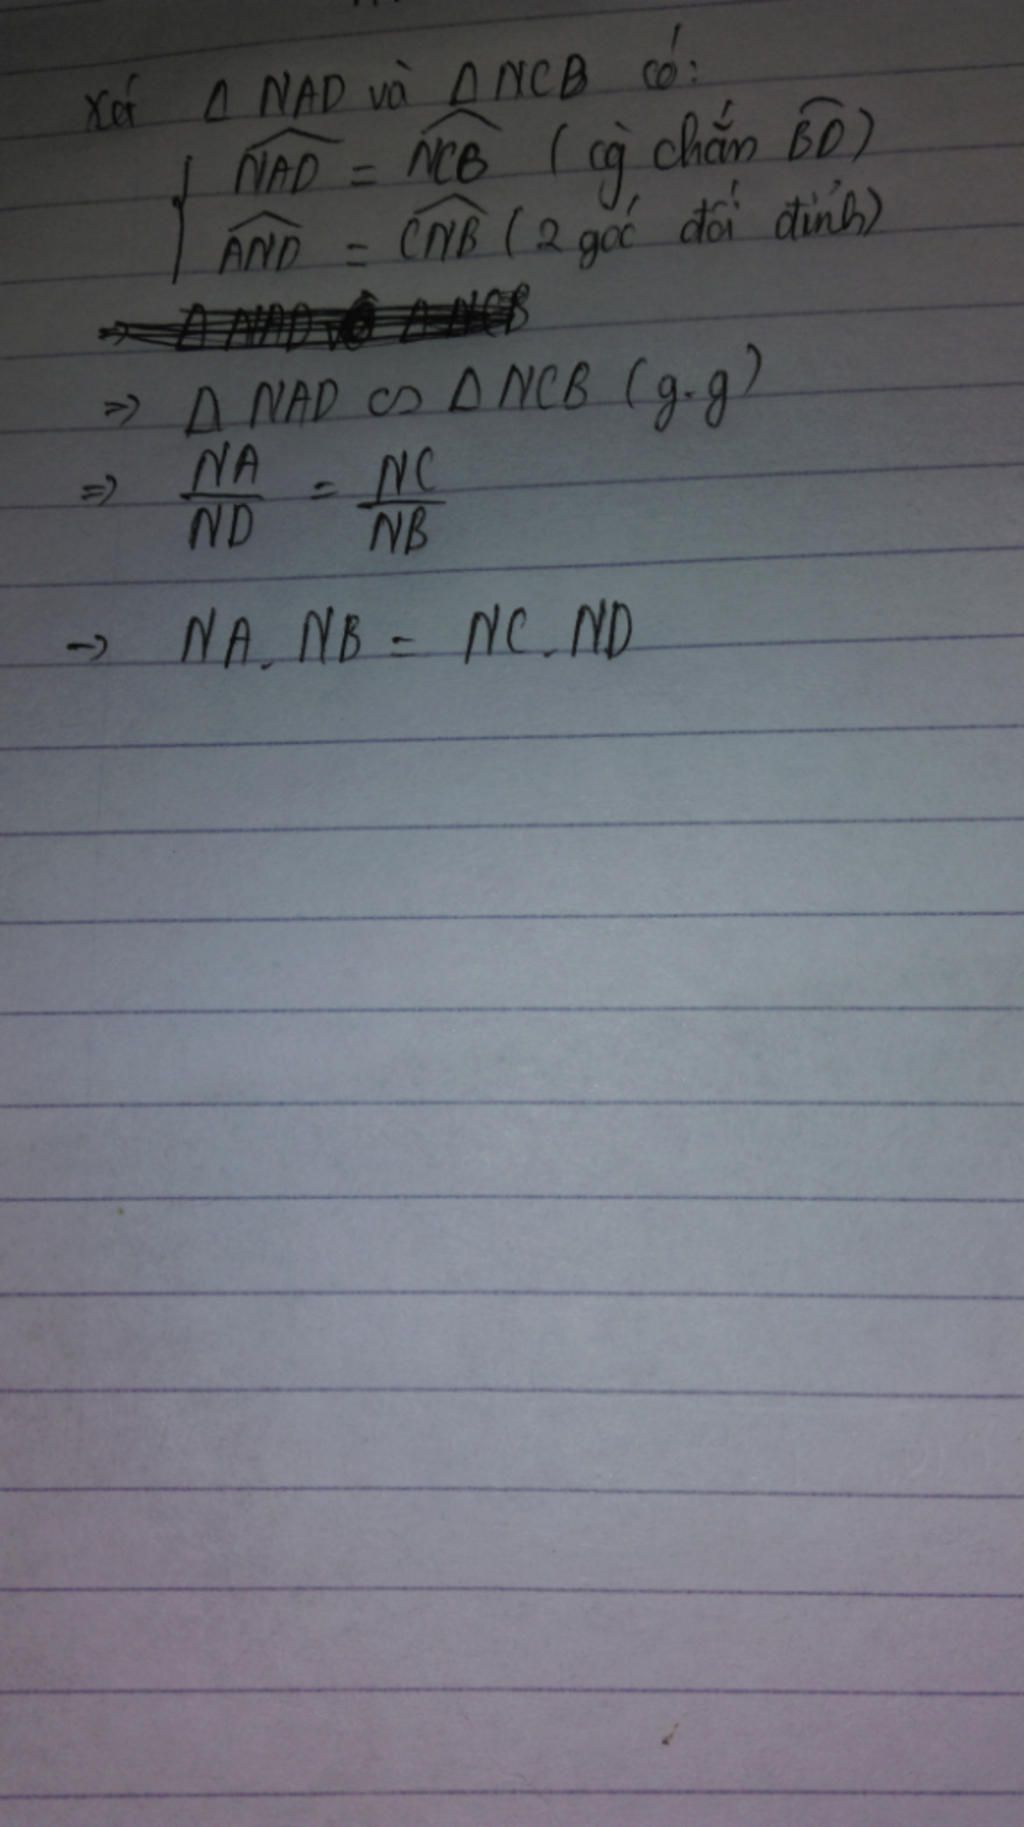 Xét Δ NAD và Δ NCB có:
{ \widehat{NAD} = \widehat{NCB} (cg chắn \widehat{BD})
\widehat{AND} = \widehat{CNB} (2 góc đối đỉnh)
⇒ Δ NAD ∽ Δ NCB (g.g)
⇒ NA/ND = NC/NB
→ NA. NB = NC. ND